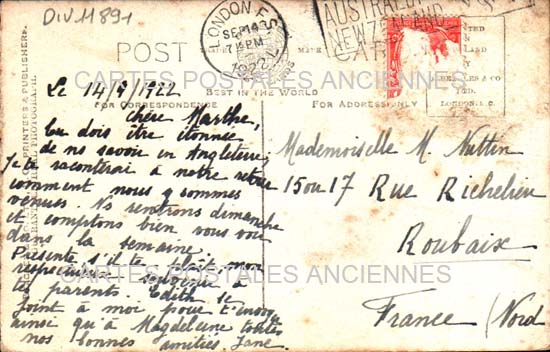 DIV.11891
LONDON F.S.
SEP 14
7 PM
1922
AUSTRALIA
NEW ZEALAND
POST CARD
CARTES POSTALES ANCIENNES
BEST IN THE WORLD
FOR CORRESPONDENCE
FOR ADDRESS ONLY
PRINTERS & PUBLISHERS
LONDON E.C.
Le 14/9/1922
Chère Marthe,
Tu dois être étonnée
de me savoir en Angleterre,
Je te raconterai à notre retour
comment nous y sommes
venues. Ns rentrons dimanche
et comptons bien vous voir
dans la semaine
Présente s'il te plaît mon
respectueux souvenir
tes parents. Edith se
joint à moi pour t'envoyer
ainsi qu'à Magdeleine toutes
nos bonnes amitiés Jane
Mademoiselle M Nuttin
15 ou 17 Rue Richelieu
Roubaix
France (Nord
CARTES POSTALES ANCIENNES